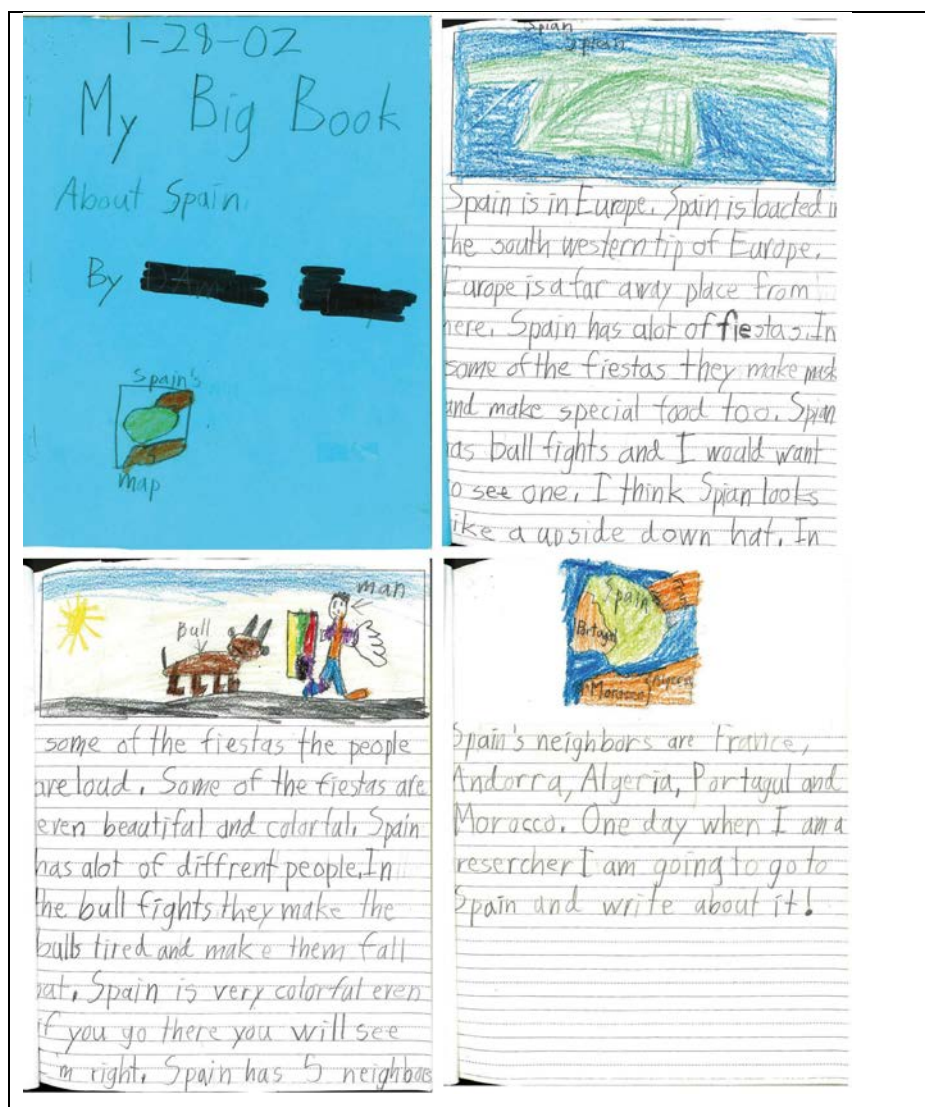 1-28-02
My Big Book
About Spain
By
Spain's
map
Spian
Spian
Spain is in Europe. Spain is loacted in
the south western tip of Europe.
Europe is a far away place from
here. Spain has alot of fiestas. In
some of the fiestas they make mask
and make special food too. Spian
has bull fights and I would want
to see one. I think Spian looks
like a upside down hat. In
Bull
man
some of the fiestas the people
are loud. Some of the fiestas are
even beautiful and colorful. Spain
has alot of diffrent people. In
the bull fights they make the
bulls tired and make them fall
Spain is very colorful even
if you go there you will see
I'm right. Spain has 5 neighbors
Spain
Portugal
Morocco
Spain's neighbors are France,
Andorra, Algeria, Portagul and
Morocco. One day when I am a
resercher I am going to go to
Spain and write about it!